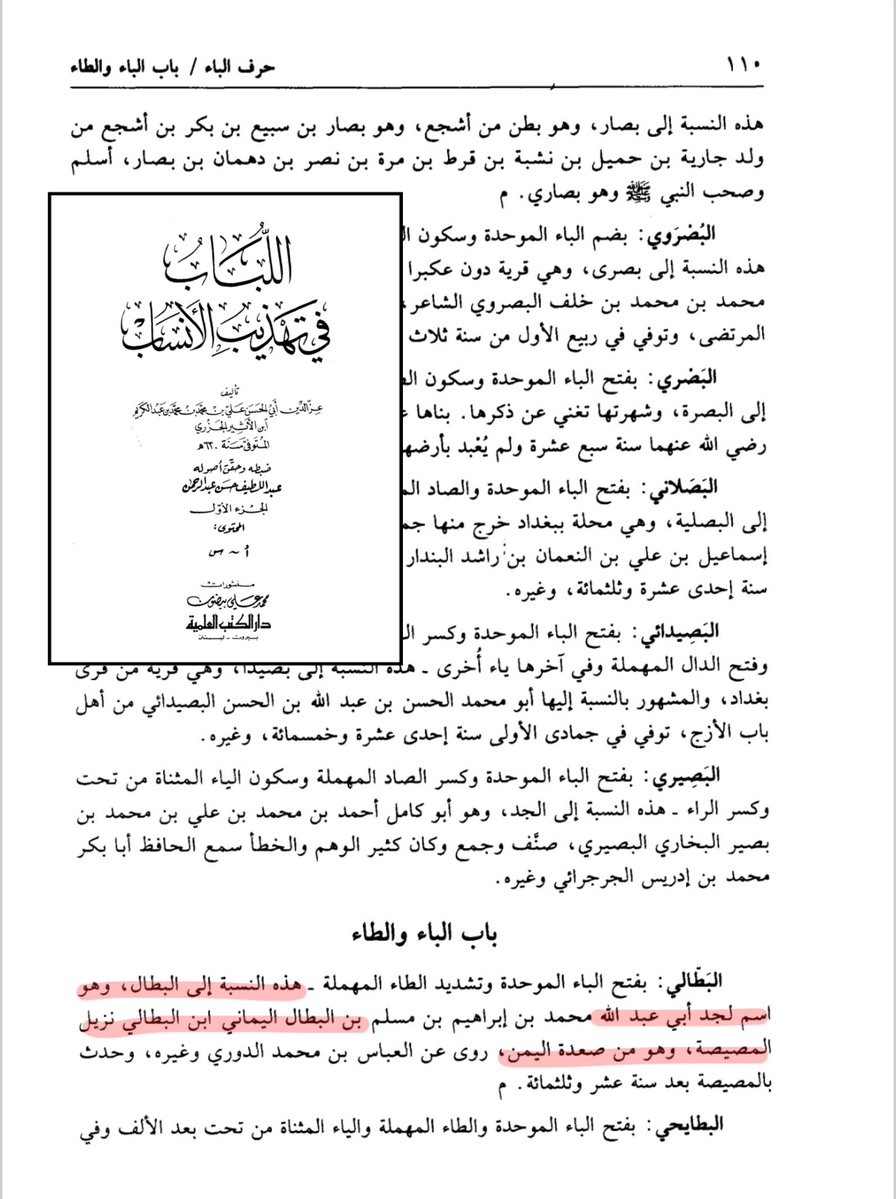 ١١٠
حرف الباء / باب الباء والطاء
هذه النسبة إلى بصار، وهو بطن من أشجع، وهو بصار بن سبيع بن بكر بن أشجع من
ولد جارية بن حميل بن نشبة بن قرط بن مرة بن نصر بن دهمان بن بصار، أسلم
وصحب النبي ﷺ وهو بصاري. م
البُصْرَوي: بضم الباء الموحدة وسكون
هذه النسبة إلى بصرى، وهي قرية دون عكبرا
محمد بن محمد بن خلف البصروي الشاعر،
المرتضى، وتوفي في ربيع الأول من سنة ثلاث
البَصْري: بفتح الباء الموحدة وسكون
إلى البصرة، وشهرتها تغني عن ذكرها. بناها
رضي الله عنهما سنة سبع عشرة ولم يُعْبد بأرضها
البَصَلاني: بفتح الباء الموحدة والصاد
إلى البصلية، وهي محلة ببغداد خرج منها
إسماعيل بن علي بن النعمان بن راشد البندار
سنة إحدى عشرة وثلثمائة، وغيره.
البَصِيدائي: بفتح الباء الموحدة وكسر
وفتح الدال المهملة وفي آخرها ياء أُخرى ـ هذه النسبة إلى بصيدا، وهي قرية من قرى
بغداد، والمشهور بالنسبة إليها أبو محمد الحسن بن عبد الله بن الحسن البصيدائي من أهل
باب الأزج، توفي في جمادى الأولى سنة إحدى عشرة وخمسمائة، وغيره.
البَصِيري: بفتح الباء الموحدة وكسر الصاد المهملة وسكون الياء المثناة من تحت
وكسر الراء ـ هذه النسبة إلى الجد، وهو أبو كامل أحمد بن محمد بن علي بن محمد بن
بصير البخاري البصيري، صنَّف وجمع وكان كثير الوهم والخطأ سمع الحافظ أبا بكر
محمد بن إدريس الجرجرائي وغيره.
باب الباء والطاء
البَطّالي: بفتح الباء الموحدة وتشديد الطاء المهملة ـ هذه النسبة إلى البطال، وهو
اسم لجد أبي عبد الله محمد بن إبراهيم بن مسلم بن البطال اليماني ابن البطالي نزيل
المصيصة، وهو من صعدة اليمن، روى عن العباس بن محمد الدوري وغيره، وحدث
بالمصيصة بعد سنة عشر وثلثمائة. م
البطايحي: بفتح الباء الموحدة والطاء المهملة والياء المثناة من تحت بعد الألف وفي
اللُّبَابُ
في تهذيب الأنساب
تأليف
عز الدين أبي الحسن علي بن محمد بن محمد بن عبد الكريم
ابن الأثير الجزري
المتوفى سنة ٦٣٠ هـ
ضبطه وحقق أصوله
عبد اللطيف حسن عبد الرحمن
الجزء الأول
المحتوى:
أ ~ س
منشورات
محمد علي بيضون
دار الكتب العلمية
بيروت - لبنان